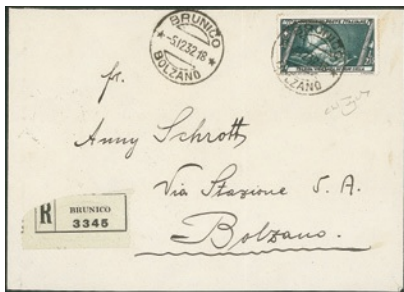 BRUNICO
-5.12.32.18
BOLZANO
BOLZANO
fr.
Anny Schrott
Via Stazione 5. A.
Bolzano.
R BRUNICO
3345